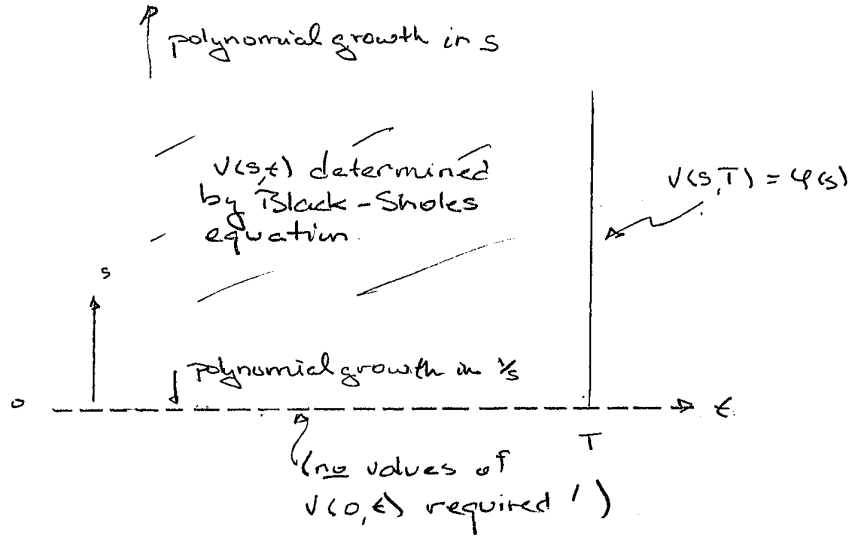 polynomial growth in s
V(s,t) determined
by Black-Sholes
equation.
V(s,T) = φ(s)
s
polynomial growth in 1/s
0
t
T
(no values of
V(0,t) required !)